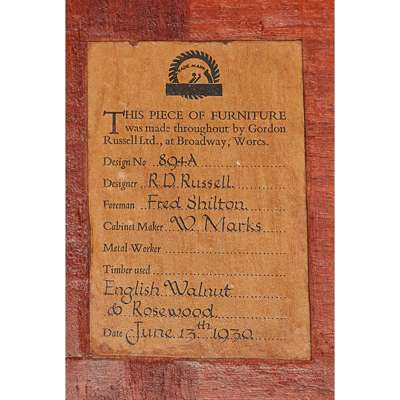 TRADE MARK
THIS PIECE OF FURNITURE
was made throughout by Gordon
Russell Ltd., at Broadway, Worcs.
Design No 894A
Designer R.D. Russell
Foreman Fred Shilton
Cabinet Maker W. Marks
Metal Worker
Timber used
English Walnut
& Rosewood
Date June 13th 1930